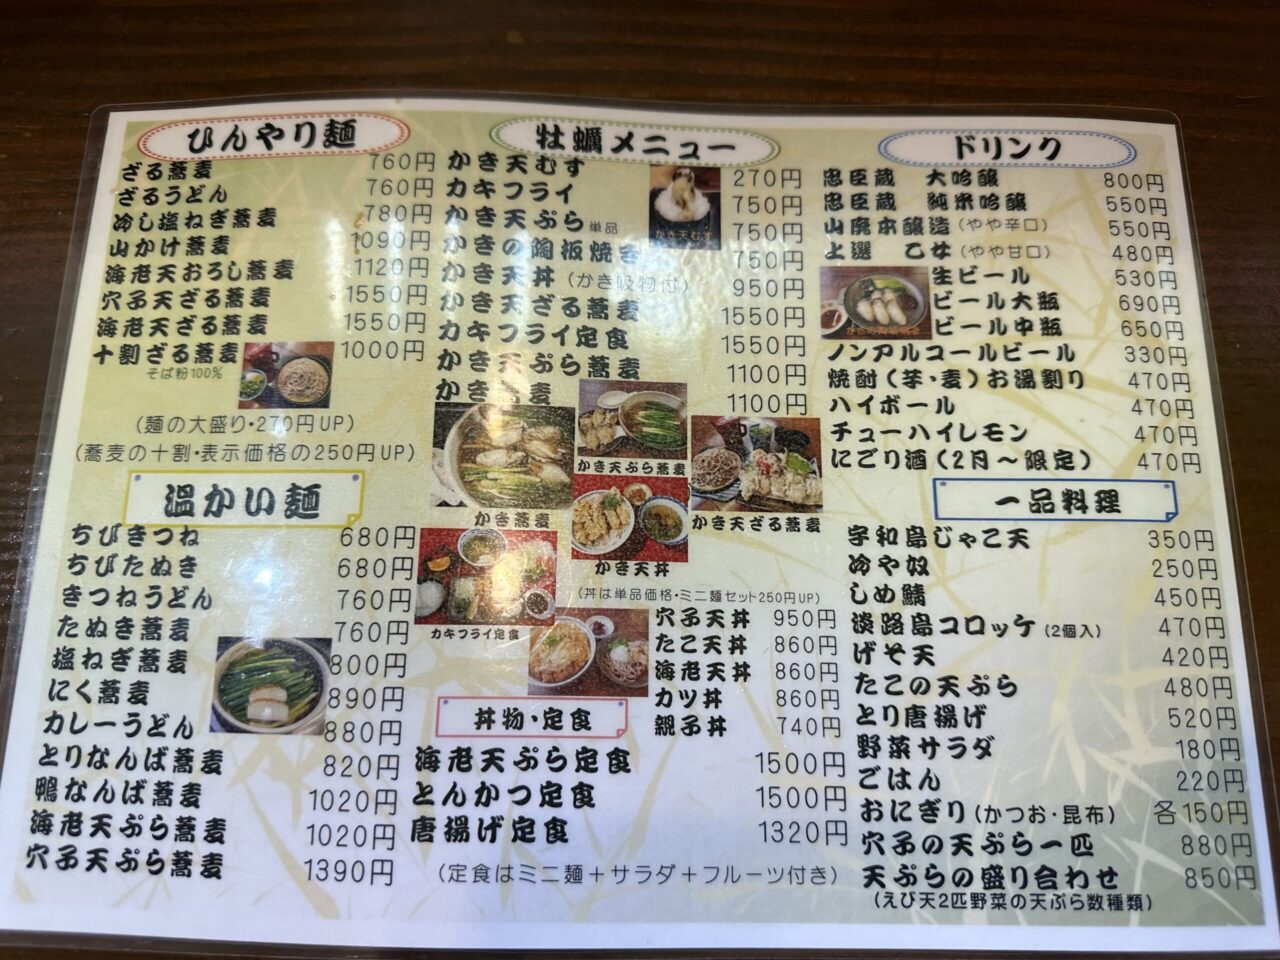 ひんやり麺
ざる蕎麦 760円
ざるうどん 760円
冷し塩ねぎ蕎麦 780円
山かけ蕎麦 1090円
海老天おろし蕎麦 1120円
穴子天ざる蕎麦 1550円
海老天ざる蕎麦 1550円
十割ざる蕎麦 1000円
そば粉100%
(麺の大盛り・270円UP)
(蕎麦の十割・表示価格の250円UP)
温かい麺
ちびきつね 680円
ちびたぬき 680円
きつねうどん 760円
たぬき蕎麦 760円
塩ねぎ蕎麦 800円
にく蕎麦 890円
カレーうどん 880円
とりなんば蕎麦 820円
鴨なんば蕎麦 1020円
海老天ぷら蕎麦 1020円
穴子天ぷら蕎麦 1390円
牡蠣メニュー
かき天むす 270円
カキフライ 750円
かき天ぷら 単品 750円
かきの陶板焼き 750円
かき天丼 (かき吸物付) 950円
かき天ざる蕎麦 1550円
カキフライ定食 1550円
かき天ぷら蕎麦 1100円
かき蕎麦 1100円
かき天むす
かき天ぷら蕎麦
かき蕎麦
かき天ざる蕎麦
かき天丼
カキフライ定食
(丼は単品価格・ミニ麺セット250円UP)
穴子天丼 950円
たこ天丼 860円
海老天丼 860円
カツ丼 860円
親子丼 740円
丼物・定食
海老天ぷら定食 1500円
とんかつ定食 1500円
唐揚げ定食 1320円
(定食はミニ麺+サラダ+フルーツ付き)
ドリンク
忠臣蔵 大吟醸 800円
忠臣蔵 純米吟醸 550円
山廃本醸造 (やや辛口) 550円
上選 乙女 (やや甘口) 480円
生ビール 530円
ビール大瓶 690円
ビール中瓶 650円
かきの陶板焼き
ノンアルコールビール 330円
焼酎(芋・麦)お湯割り 470円
ハイボール 470円
チューハイレモン 470円
にごり酒(2月～限定) 470円
一品料理
宇和島じゃこ天 350円
冷や奴 250円
しめ鯖 450円
淡路島コロッケ (2個入) 470円
げそ天 420円
たこの天ぷら 480円
とり唐揚げ 520円
野菜サラダ 180円
ごはん 220円
おにぎり (かつお・昆布) 各150円
穴子の天ぷら一匹 880円
天ぷらの盛り合わせ 850円
(えび天2匹野菜の天ぷら数種類)